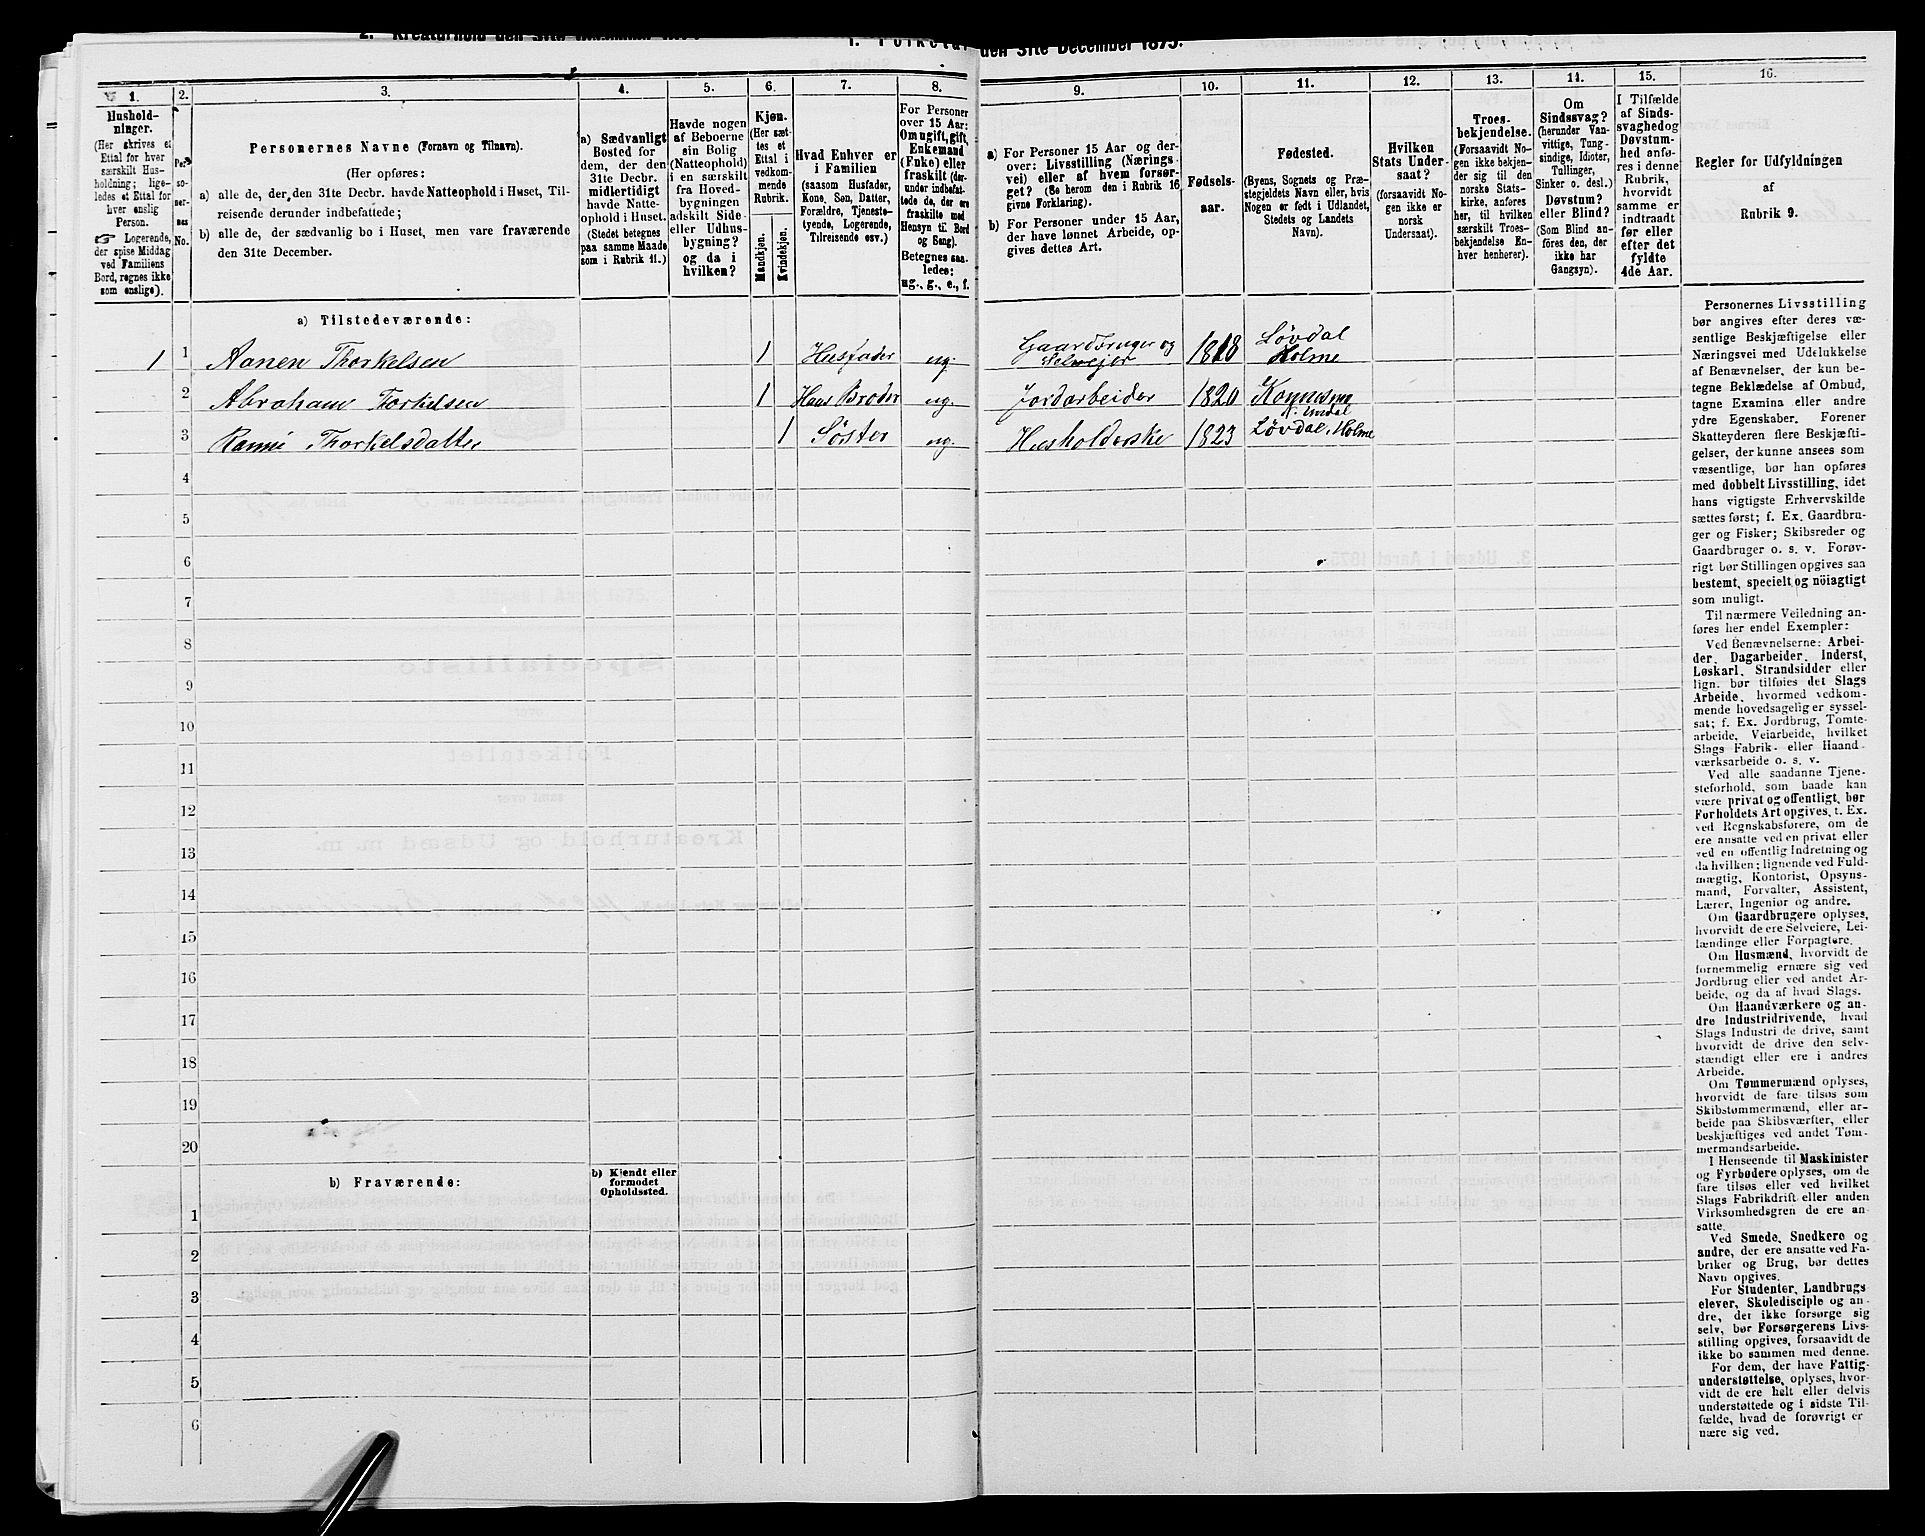 1. Folketal den 31te December 1875.
1.
Hushold-
ninger.
(Her skrives et
Ettal for hver
særskilt Hus-
holdning; lige-
ledes et Ettal for
hver enslig
Person.
Logerende,
der spise Middag
ved Familiens
Bord, regnes ikke
som enslige).
2.
Per-
so-
ner-
nes
No.
3.
Personernes Navne (Fornavn og Tilnavn).
(Her opføres:
a) alle de, der den 31te Decbr. havde Natteophold i Huset, Til-
reisende derunder indbefattede;
b) alle de, der sædvanlig bo i Huset, men vare fraværende
den 31te December.
4.
a) Sædvanligt
Bosted for
dem, der den
31te Decbr.
midlertidigt
havde Natte-
ophold i Huset.
(Stedet betegnes
paa samme Maade
som i Rubrik 11.)
5.
Havde nogen
af Beboerne
sin Bolig
(Natteophold)
i en særskilt
fra Hoved-
bygningen
adskilt Side-
eller Udhus-
bygning?
og da i
hvilken?
6.
Kjøn.
(Her sæt-
tes et
Ettal i
vedkom-
mende
Rubrik.
Mandkjøn.
Kvindekjøn.
7.
Hvad Enhver er
i Familien
(saasom Husfader,
Kone, Søn, Datter,
Forældre, Tjeneste-
tyende, Logerende,
Tilreisende osv.)
8.
For Personer
over 15 Aar:
Om ugift, gift,
Enkemand
(Enke) eller
fraskilt (der-
under indbefat-
tede de, der ere
fraskilte med
Hensyn til Bord
og Seng).
Betegnes saa-
ledes:
ug., g., e., f.
9.
a) For Personer 15 Aar og der-
over: Livsstilling (Nærings-
vei) eller af hvem forsør-
get? (Se herom den i Rubrik 16
givne Forklaring).
b) For Personer under 15 Aar,
der have lønnet Arbeide, op-
gives dettes Art.
10.
Fødsels-
aar.
11.
Fødested.
(Byens, Sognets og Præ-
stegjeldets Navn eller, hvis
Nogen er født i Udlandet,
Stedets og Landets
Navn).
12.
Hvilken
Stats Under-
saat?
(forsaavidt No-
gen ikke er
norsk
Undersaat).
13.
Troes-
bekjendelse.
(Forsaavidt No-
gen ikke bekjen-
der sig til den
norske Stats-
kirke, anføres
her, til hvilken
særskilt Troes-
bekjendelse En-
hver henhører).
14.
Om
Sindssvag?
(herunder Van-
vittige, Tung-
sindige, Idioter,
Tullinger,
Sinker o. desl.)
Døvstum?
eller Blind?
(Som Blind an-
føres den, der
ikke har
Gangsyn).
15.
I Tilfælde
af Sinds-
svaghed og
Døvstum-
hed anfø-
res i denne
Rubrik,
hvorvidt
samme er
indtraadt
før eller
efter det
fyldte
4de Aar.
16.
Regler for Udfyldningen
af
Rubrik 9.
a) Tilstedeværende:
1 1 Aanen Thorkelsen 1 Husfader ug. Gaardbruger og Selveier 1818 Løvdal Holme
2 Abraham Torkelsen 1 Hans Broder ug. Jordarbeider 1820 N. Undal
3 Thorkelsdatter 1 Søster ug. Husholderske 1823 Løvdal, Holme
4
5
6
7
8
9
10
11
12
13
14
15
16
17
18
19
20
b) Fraværende:
b) Kjendt eller
formodet
Opholdssted.
1
2
3
4
5
6
Personernes Livsstilling
bør angives efter deres væ-
sentlige Beskjæftigelse eller
Næringsvei med Udelukkelse
af Benævnelser, der kun be-
tegne Beklædelse af Ombud,
tagne Examina eller andre
ydre Egenskaber. Forener
Skatteyderen flere Beskjæfti-
gelser, der kunne ansees som
væsentlige, bør han opføres
med dobbelt Livsstilling, idet
hans vigtigste Erhvervskilde
sættes først; f. Ex. Gaardbru-
ger og Fisker; Skibsreder og
Gaardbruger o. s. v. Forøv-
rigt bør Stillingen opgives saa
bestemt, specielt og nöiagtigt
som muligt.
Til nærmere Veiledning an-
føres her endel Exempler:
Ved Benævnelserne: Arbei-
der, Dagarbeider, Inderst,
Løskarl, Strandsidder eller
lign. bør tilføies det Slags
Arbeide, hvormed vedkom-
mende hovedsagelig er syssel-
sat; f. Ex. Jordbrug, Tomte-
arbeide, Veiarbeide, hvilket
Slags Fabrik- eller Haand-
værksarbeide o. s. v.
Ved alle saadanne Tjene-
steforhold, som baade kan
være privat og offentligt, bør
Forholdets Art opgives, t. Ex.
ved Regnskabsførere, om de
ere ansatte ved en privat eller
ved en offentlig Indretning og
da hvilken; lignende ved Fuld-
mægtig, Kontorist, Opsyns-
mand, Forvalter, Assistent,
Lærer, Ingeniør og andre.
Om Gaardbrugere oplyses,
hvorvidt de ere Selveiere, Lei-
lændinge eller Forpagtere.
Om Husmænd, hvorvidt de
fornemmelig ernære sig ved
Jordbrug eller ved andet Ar-
beide, og da af hvad Slags.
Om Haandværkere og an-
dre Industridrivende, hvad
Slags Industri de drive, samt
hvorvidt de drive den selv-
stændigt eller ere i andres
Arbeide.
Om Tømmermænd oplyses,
hvorvidt de fare tilsøs som
Skibstømmermænd, eller ar-
beide paa Skibsværfter, eller
beskjæftiges ved andet Tøm-
mermandsarbeide.
I Henseende til Maskinister
og Fyrbødere oplyses, om de
fare tilsøs eller ved hvilket
Slags Fabrikdrift eller anden
Virksomhedsgren de ere an-
satte.
Ved Smede, Snedkere og
andre, der ere ansatte ved Fa-
briker og Brug, bør dettes
Navn opgives.
For Studenter, Landbrugs-
elever, Skoledisciple og an-
dre, der ikke forsørge sig
selv, bør Forsørgerens Livs-
stilling opgives, forsaavidt de
ikke bo sammen med denne.
For dem, der have Fattig-
understøttelse, oplyses, hvor-
vidt de ere helt eller delvis
understøttede og i sidste Til-
fælde, hvad de forøvrigt er
nære sig ved.